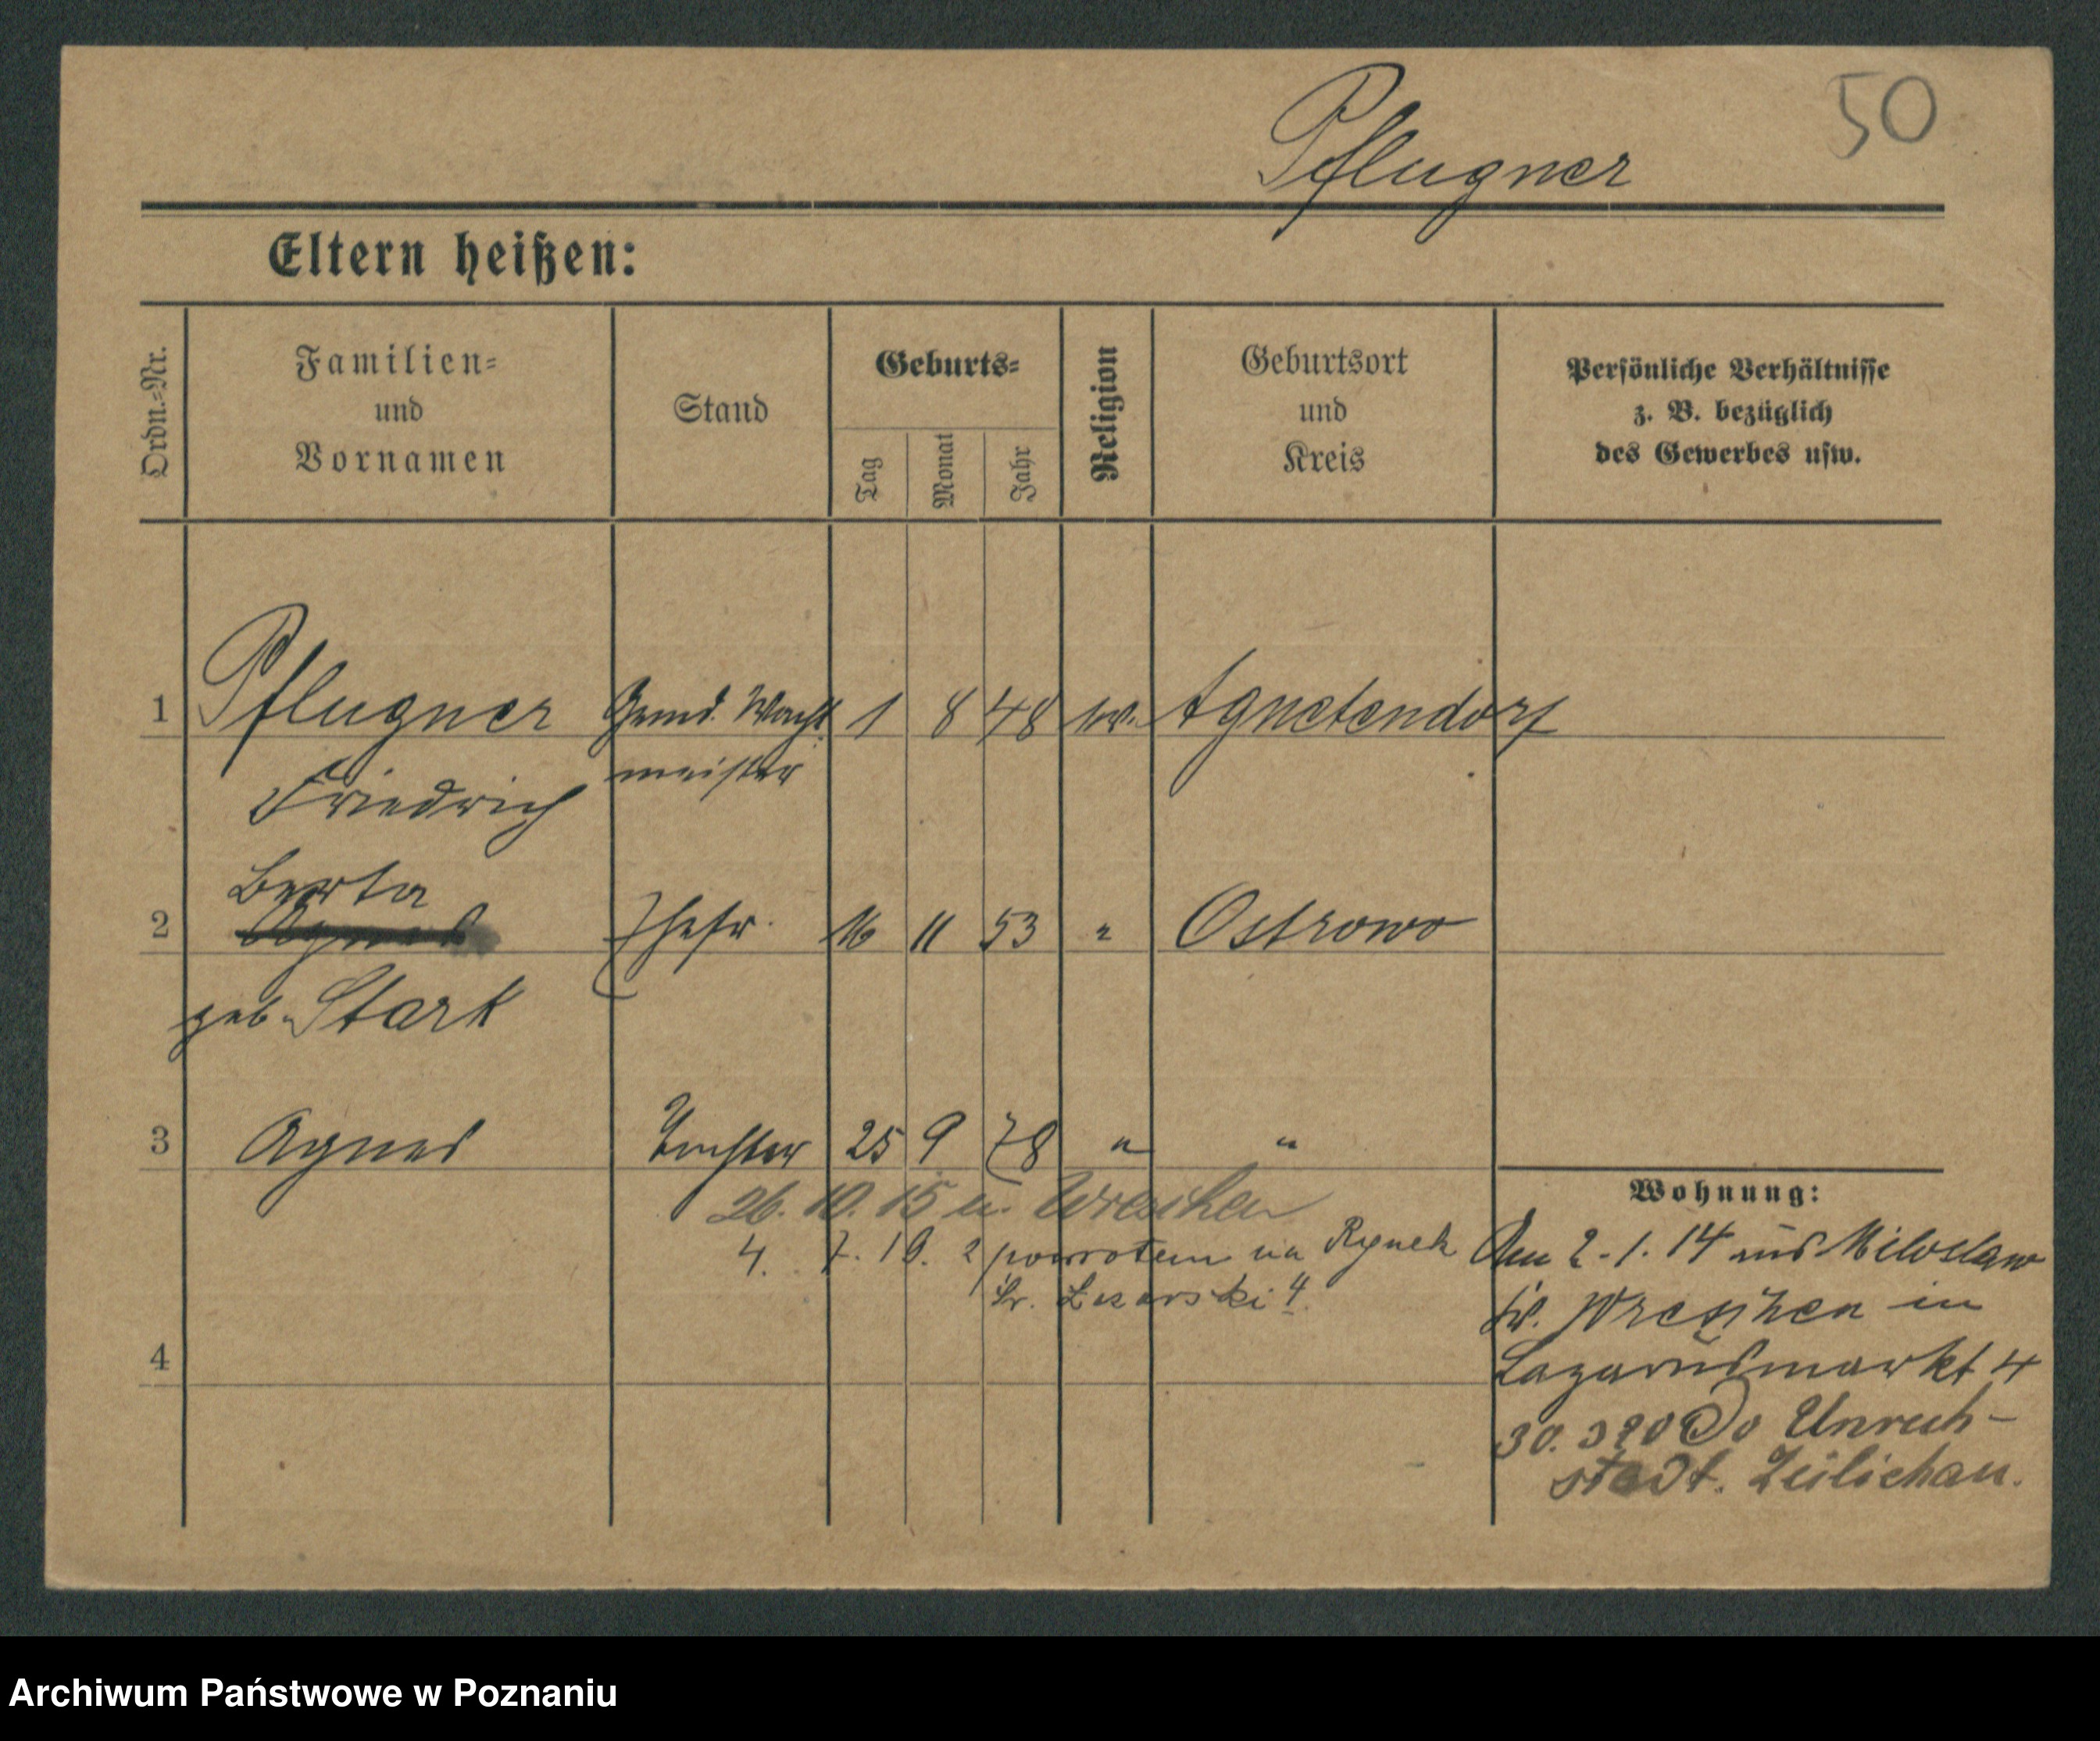 50
Pflugner
Eltern heißen:
Ordn.-Nr.
Familien-
und
Vornamen
Stand
Geburts-
Tag
Monat
Jahr
Religion
Geburtsort
und
Kreis
Persönliche Verhältnisse
z. B. bezüglich
des Gewerbes usw.
1 Pflugner Gend. Wacht 1 8 48 ev. Agnetendorf
meister
Friedrich
Berta
2 Agnes Ehefr. 16 11 53 " Ostrowo
geb. Stark
3 Agnes Tochter 25 9 78 " "
26. 10. 15 n. Wreschen
4. 7. 19. z powrotem na Rynek
Śr. Łazarski 4.
4
Wohnung:
Am 2.1.14 aus Miloslaw
Kr. Wreschen in
Lazarusmarkt 4
30. 3 20 Unruh-
stadt. Züllichau.